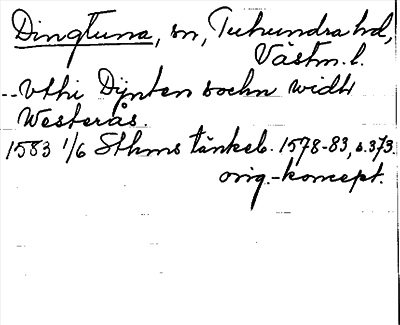 Dingtuna, sn, Tuhundra hd,
Västm. l.
-- vthi Dÿnten sochn widh
Westerås.
1583 1/6 Sthms tänkeb. 1578-83, s. 373.
orig.-koncept.